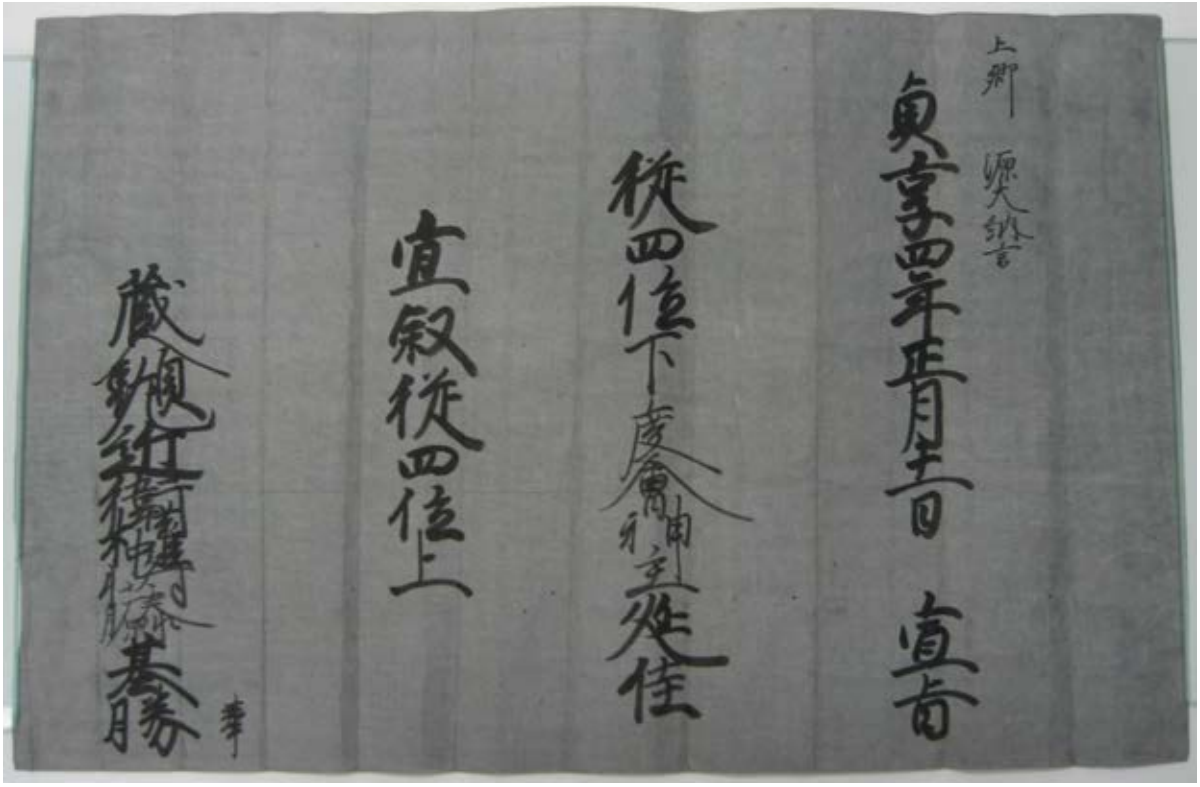 上卿 源大納言
貞享四年正月十一日 宣旨
従四位下度會神主延佳
宜叙従四位上
蔵人頭左近衛権中将藤原基勝 奉